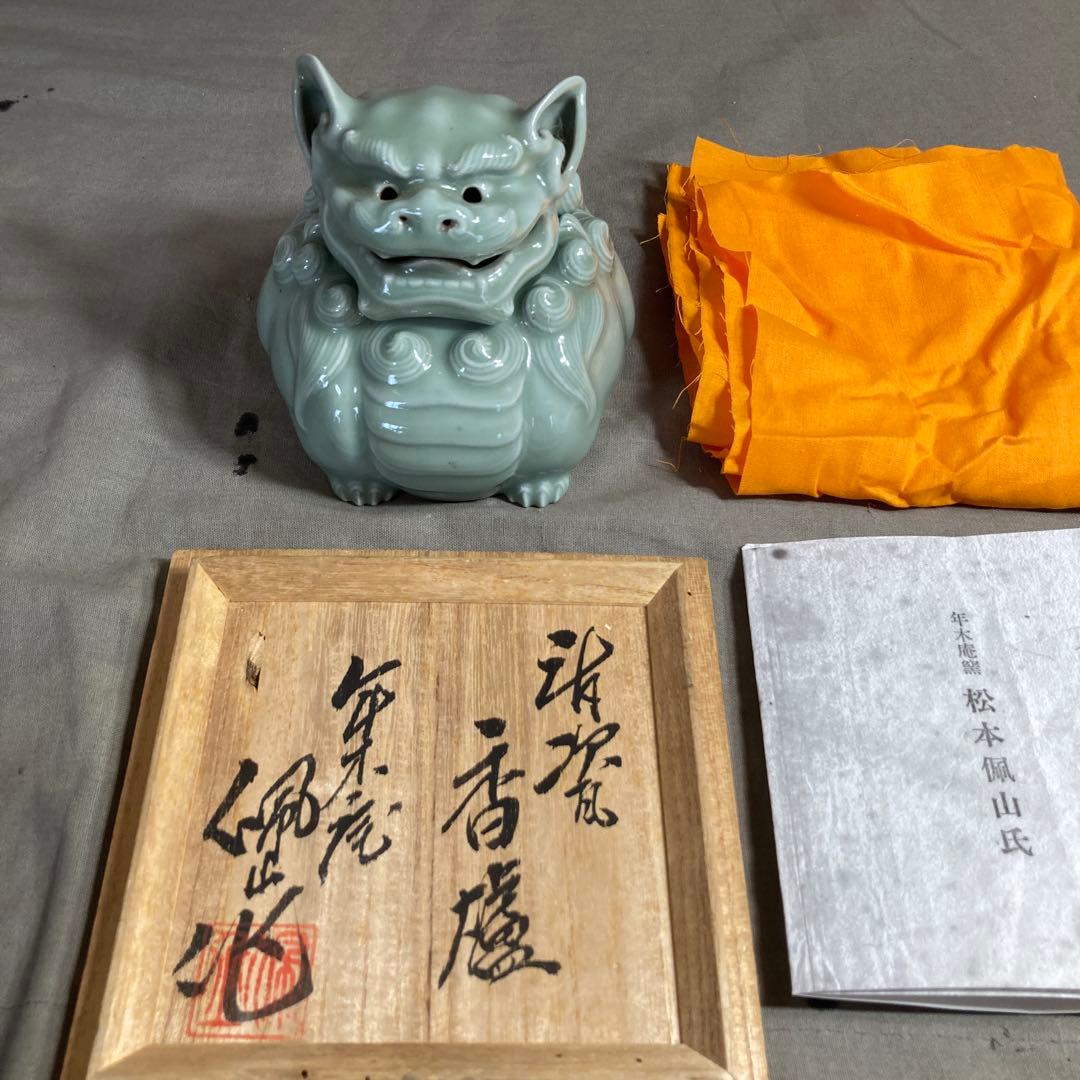 青瓷
香爐
年木庵
佩山作
年木庵窯 松本佩山氏